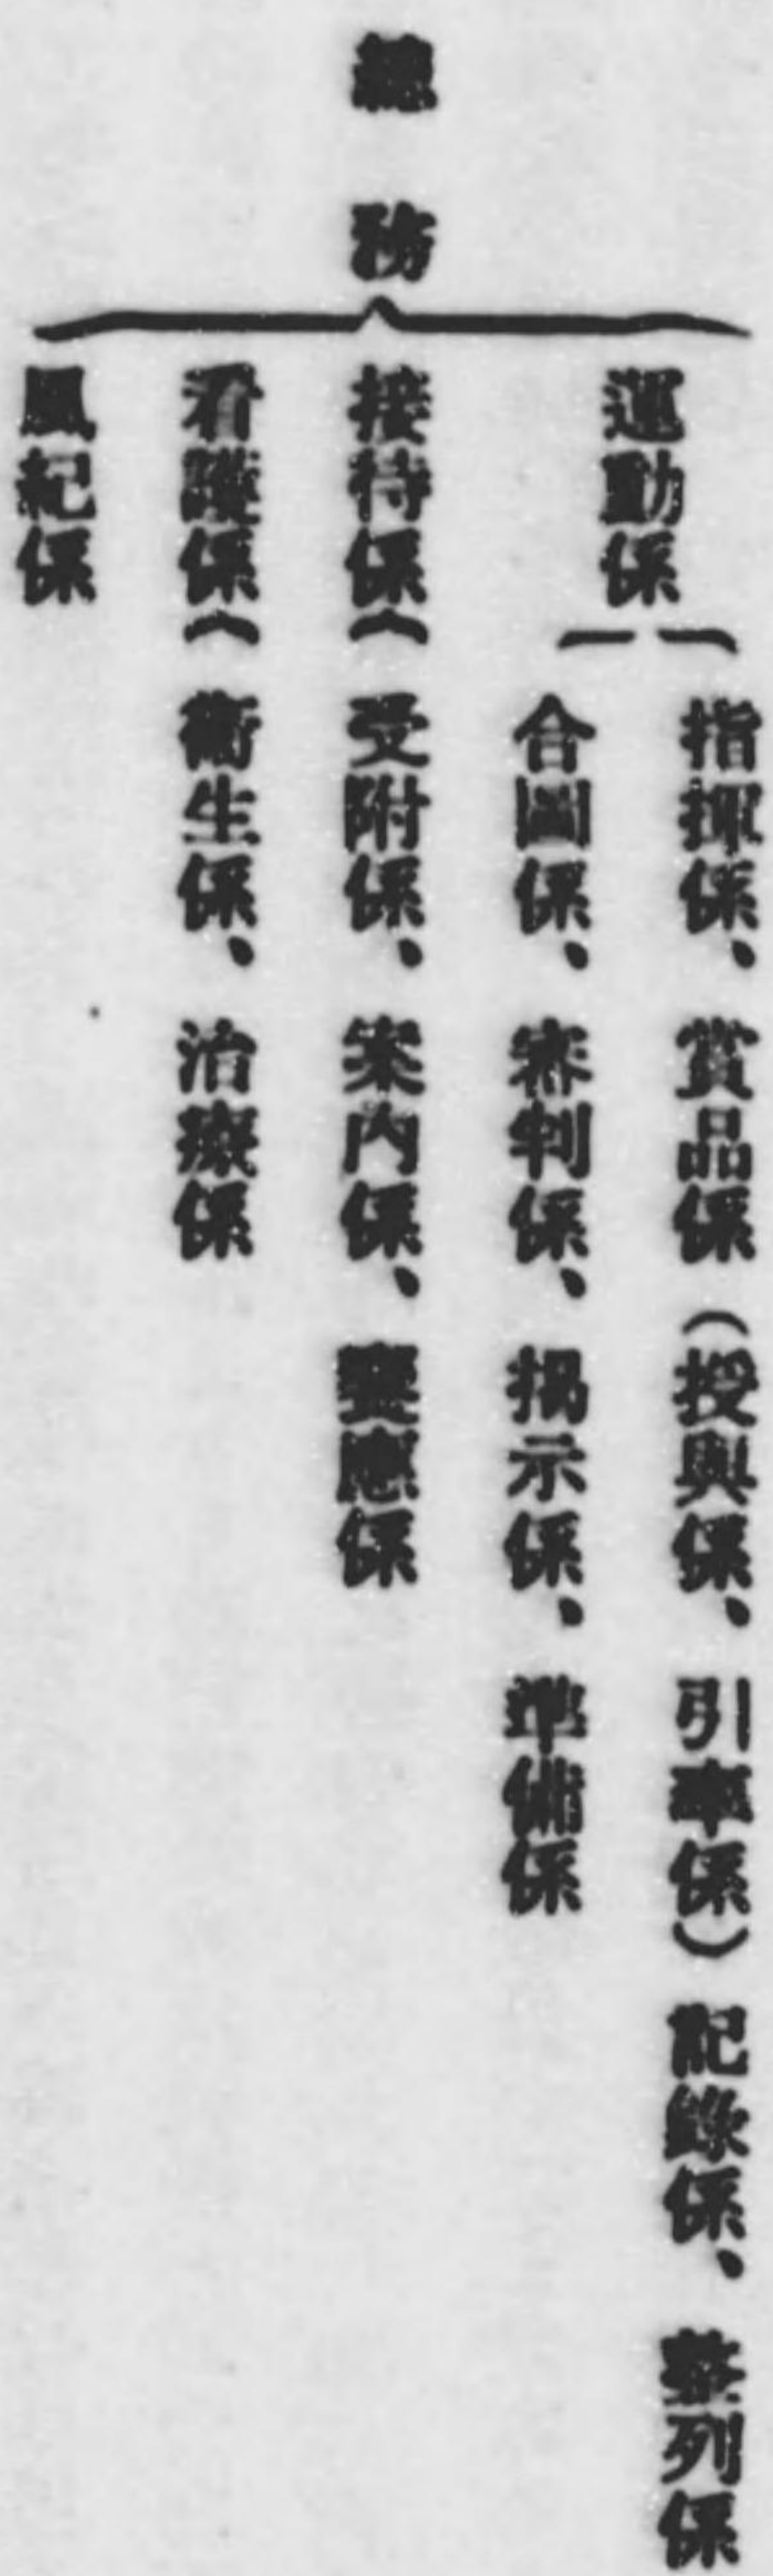 總務
運動係
指揮係、賞品係(授與係、引率係)記錄係、整列係
合圖係、審判係、揭示係、準備係
接待係
受附係、案內係、饗應係
看護係
衞生係、治療係
風紀係